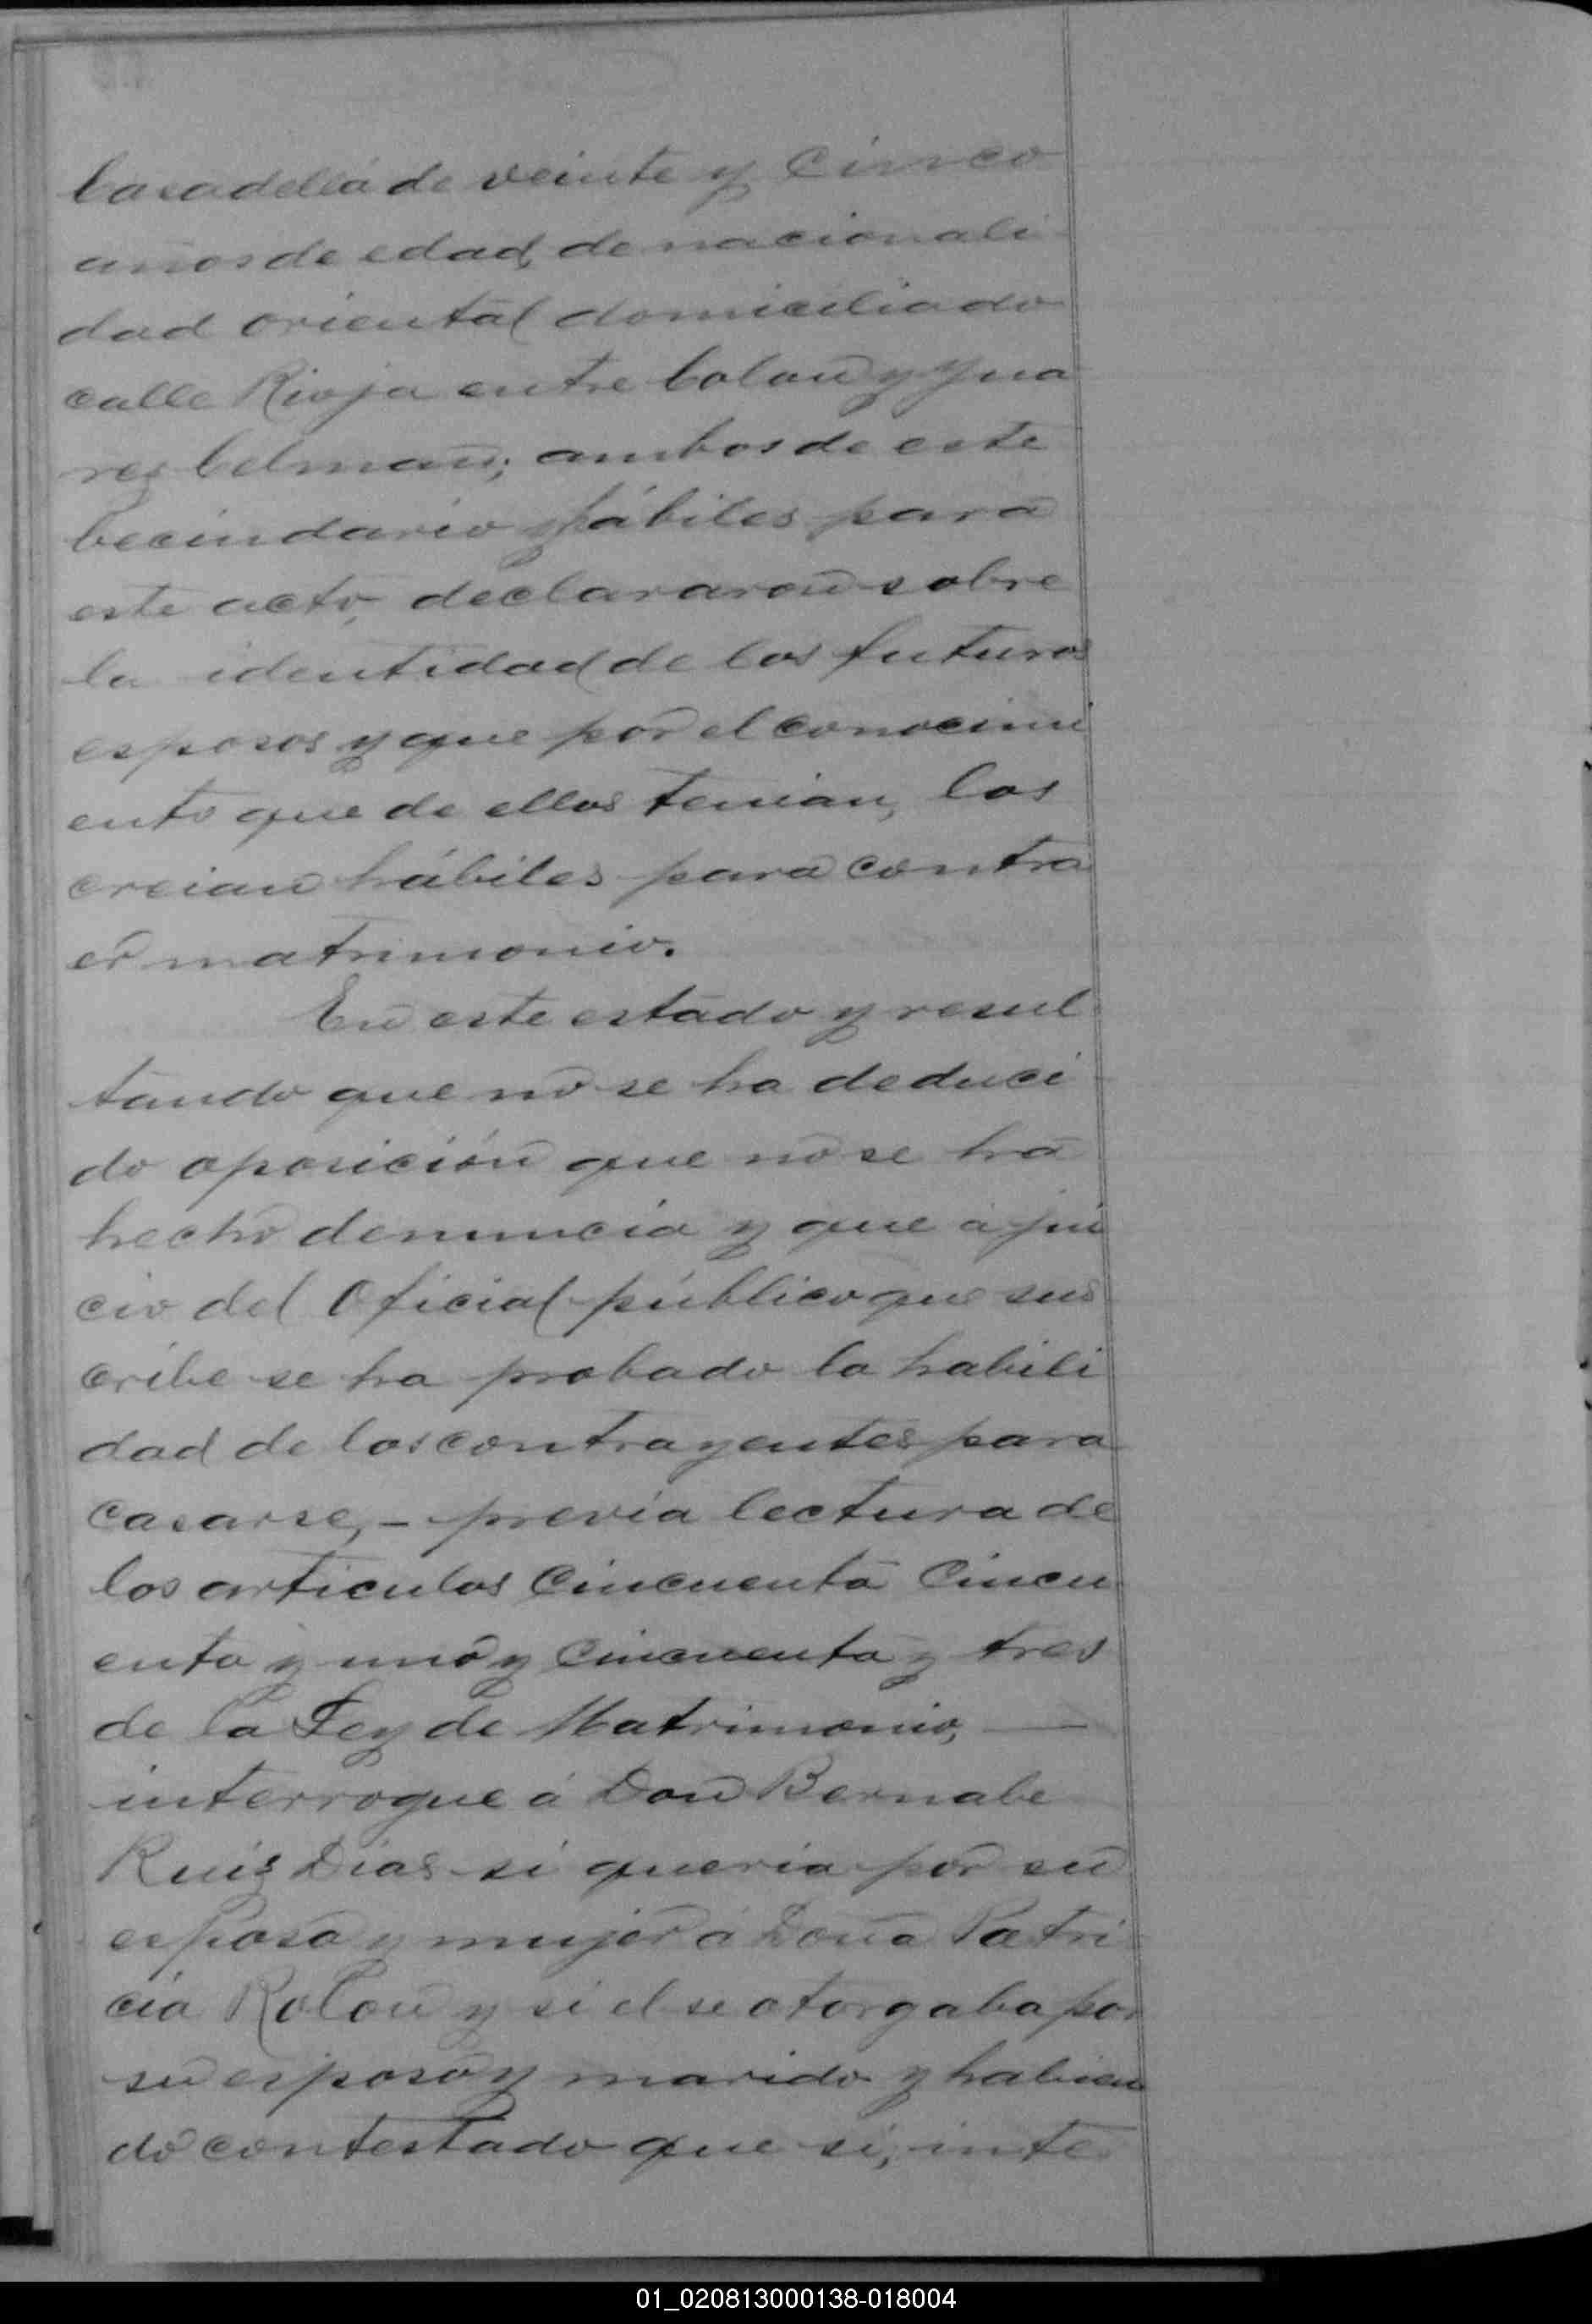 Casadellá de veinte y cinco
años de edad, de nacionali
dad oriental domiciliado
calle Rioja entre Colon y Yua
res Celman; ambos de este
becindario y hábiles para
este acto, declararon sobre
la identidad de los futuros
esposos y que por el conocimi
ento que de ellos tenian, los
creian hábiles para contra
er matrimonio.
En este estado y resul
tando que no se ha deduci
do oposición que no se ha
hecho denuncia y que á jui
cio del Oficial público que sus
cribe se ha probado la habili
dad de los contrayentes para
casarse, - previa lectura de
los articulos cincuenta cincu
enta y uno y cincuenta y tres
de la Ley de Matrimonio, —
interrogue á Don Bernabe
Ruiz Dias si queria por su
esposa y mujer á Doña Patri
cia Rolon y si el se otorgaba por
su esposo y marido y habien
do contestado que si, inte
01_020813000138-018004